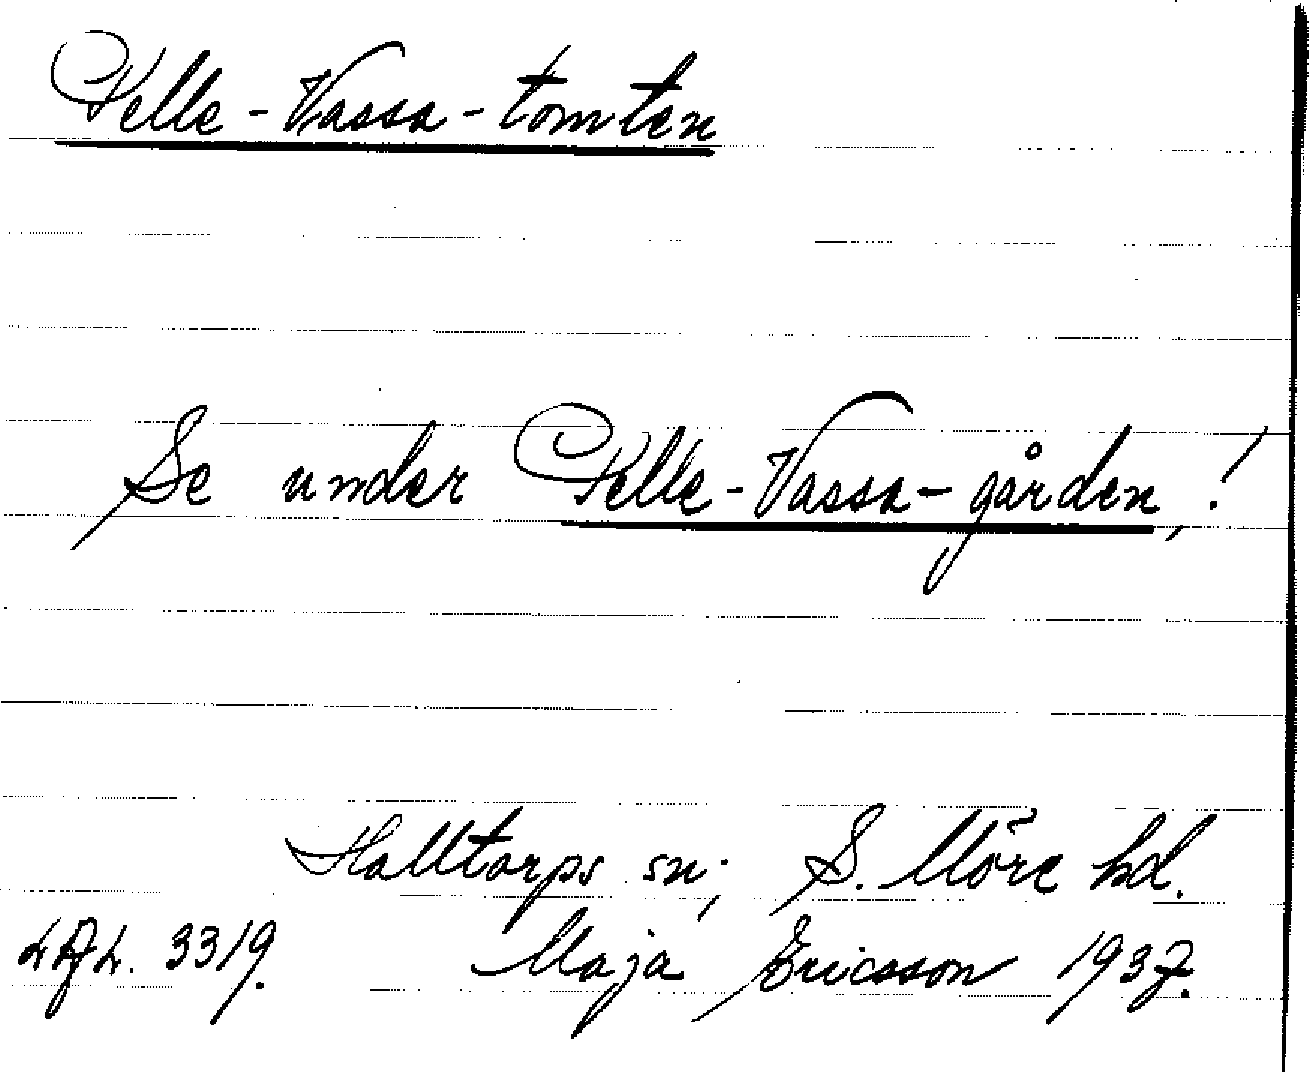 Pelle-Vassa-tomten
Se under Pelle-Vassa-gården,!
Halltorps sn; S. Möre hd.
Maja Ericsson 1937.
3319.